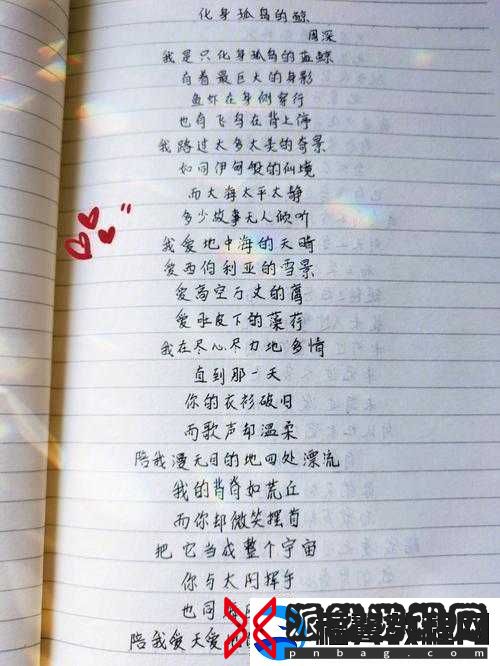 化身孤岛的鲸
周深
我是只化身孤岛的蓝鲸
有着最巨大的身影
鱼虾在身侧穿行
也有飞鸟在背上停
我路过太多太美的奇景
如同伊甸般的仙境
而大海太平太静
多少故事无人倾听
我爱地中海的天晴
爱西伯利亚的雪景
爱高空万丈的鹰
爱水皮下的藻荇
我在尽心尽力地多情
直到那一天
你的衣衫破旧
而歌声却温柔
陪我漫无目的地四处漂流
我的背脊如荒丘
而你却微笑摆首
把它当成整个宇宙
你与太阳挥手
也同
陪我爱天爱
pnbag.com